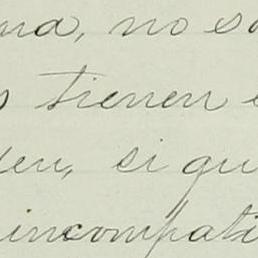 na, no s
s tienen e
den, si qu
incompati